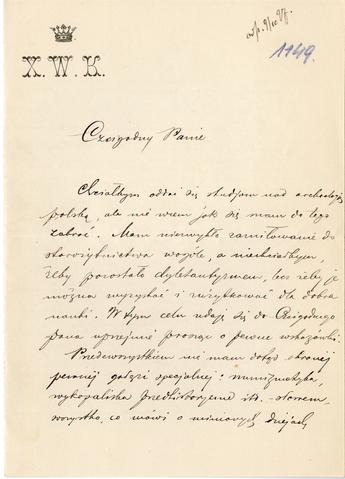 X. W. K.
odp. 9/10 97.
1749.
Czcigodny Panie
Chciałbym oddać się studjom nad archeologją
polską, ale nie wiem jak się mam do tego
zabrać. Mam niezwykłe zamiłowanie do
starożytnictwa wogóle, a niechciałbym,
żeby pozostało dyletantyzmem, lecz żeby je
można wyzyskać i zużytkować dla dobra
nauki. W tym celu udaję się do Czcigodnego
pana uprzejmie prosząc o pewne wskazówki.
Przedewszystkiem nie mam dotąd obranej
pewnej gałęzi specjalnej: numizmatyka,
wykopaliska przedhistoryczne itd. słowem,
wszystko, co mówi o minionych dziejach